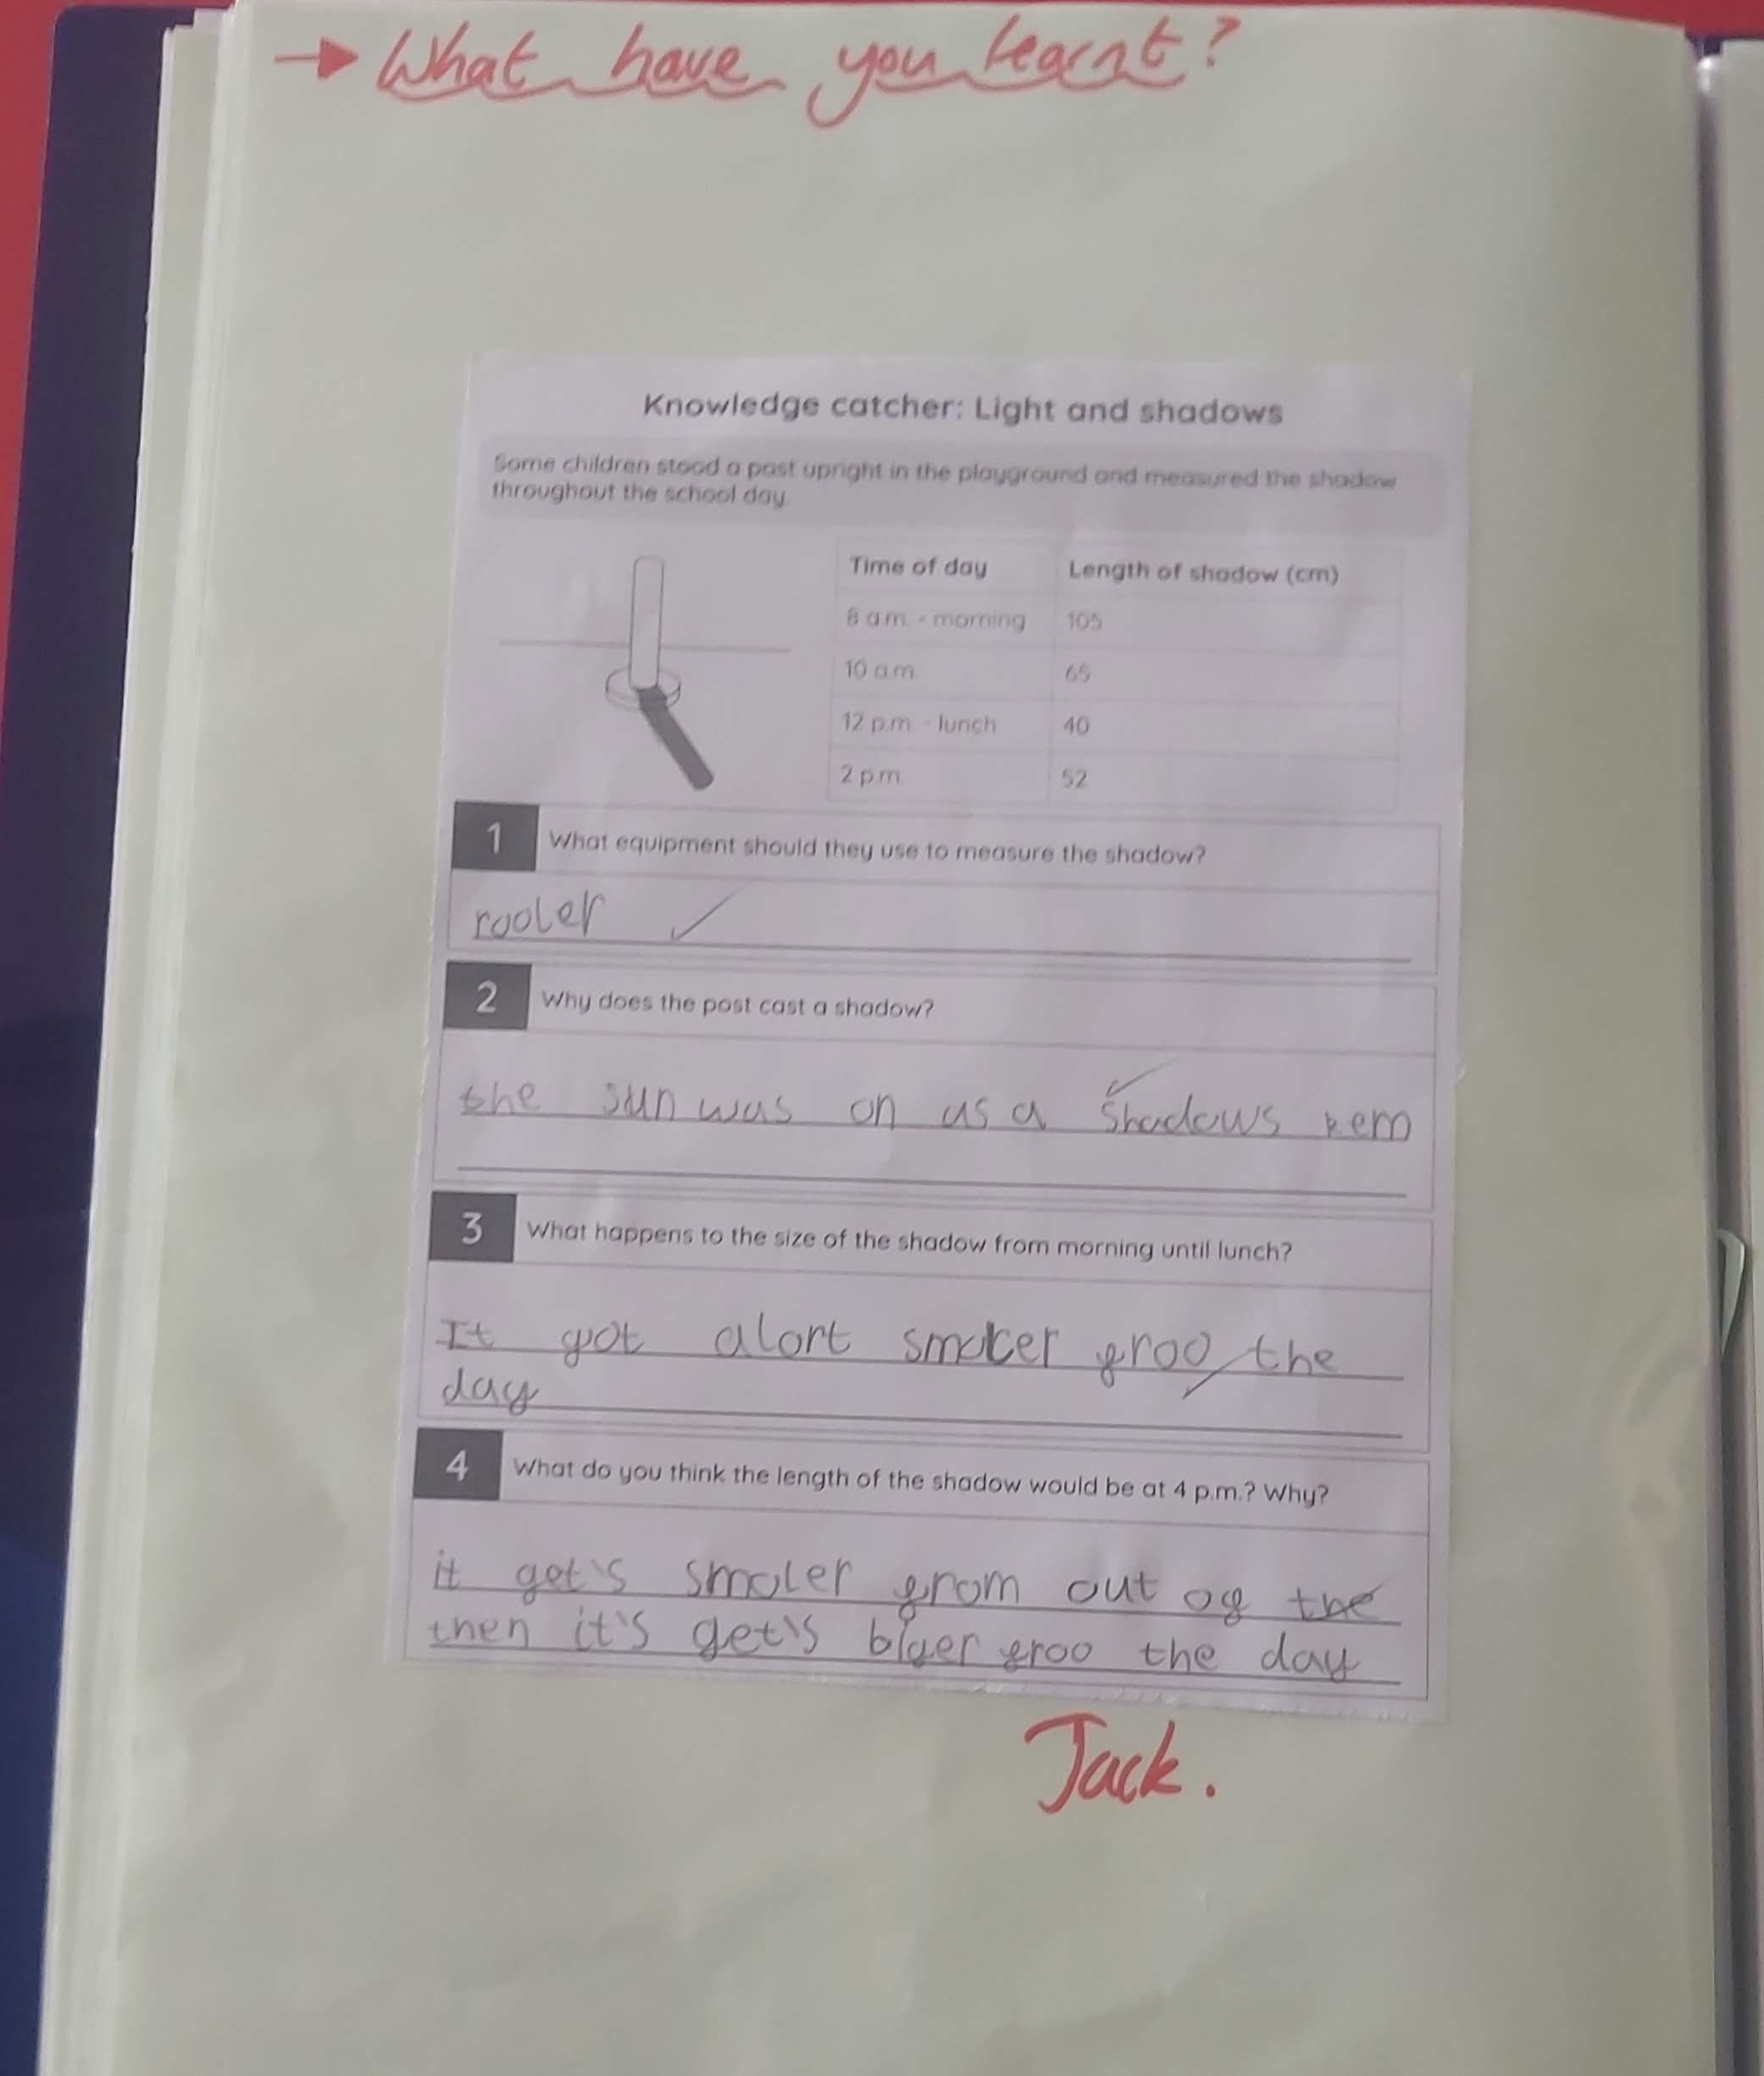 → What have you learnt?
Knowledge catcher: Light and shadows
Some children stood a post upright in the playground and measured the shadow
throughout the school day.
Time of day Length of shadow (cm)
8 a.m. - morning 105
10 a.m. 65
12 p.m. - lunch 40
2 p.m. 52
1 What equipment should they use to measure the shadow?
rooler ✓
2 Why does the post cast a shadow?
the sun was on as a shadows kem
3 What happens to the size of the shadow from morning until lunch?
It got alort smoler froo the
day
4 What do you think the length of the shadow would be at 4 p.m.? Why?
it get's smoler from out of the
then it's get's biger froo the day
Jack.